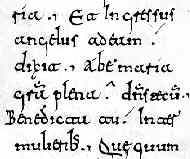 ria . Et Ingressus
angelus ad eam .
dixit . Abe maria
gra plena . dns tecu .
Benedicta tu . Inter
mulierib; . Que quum